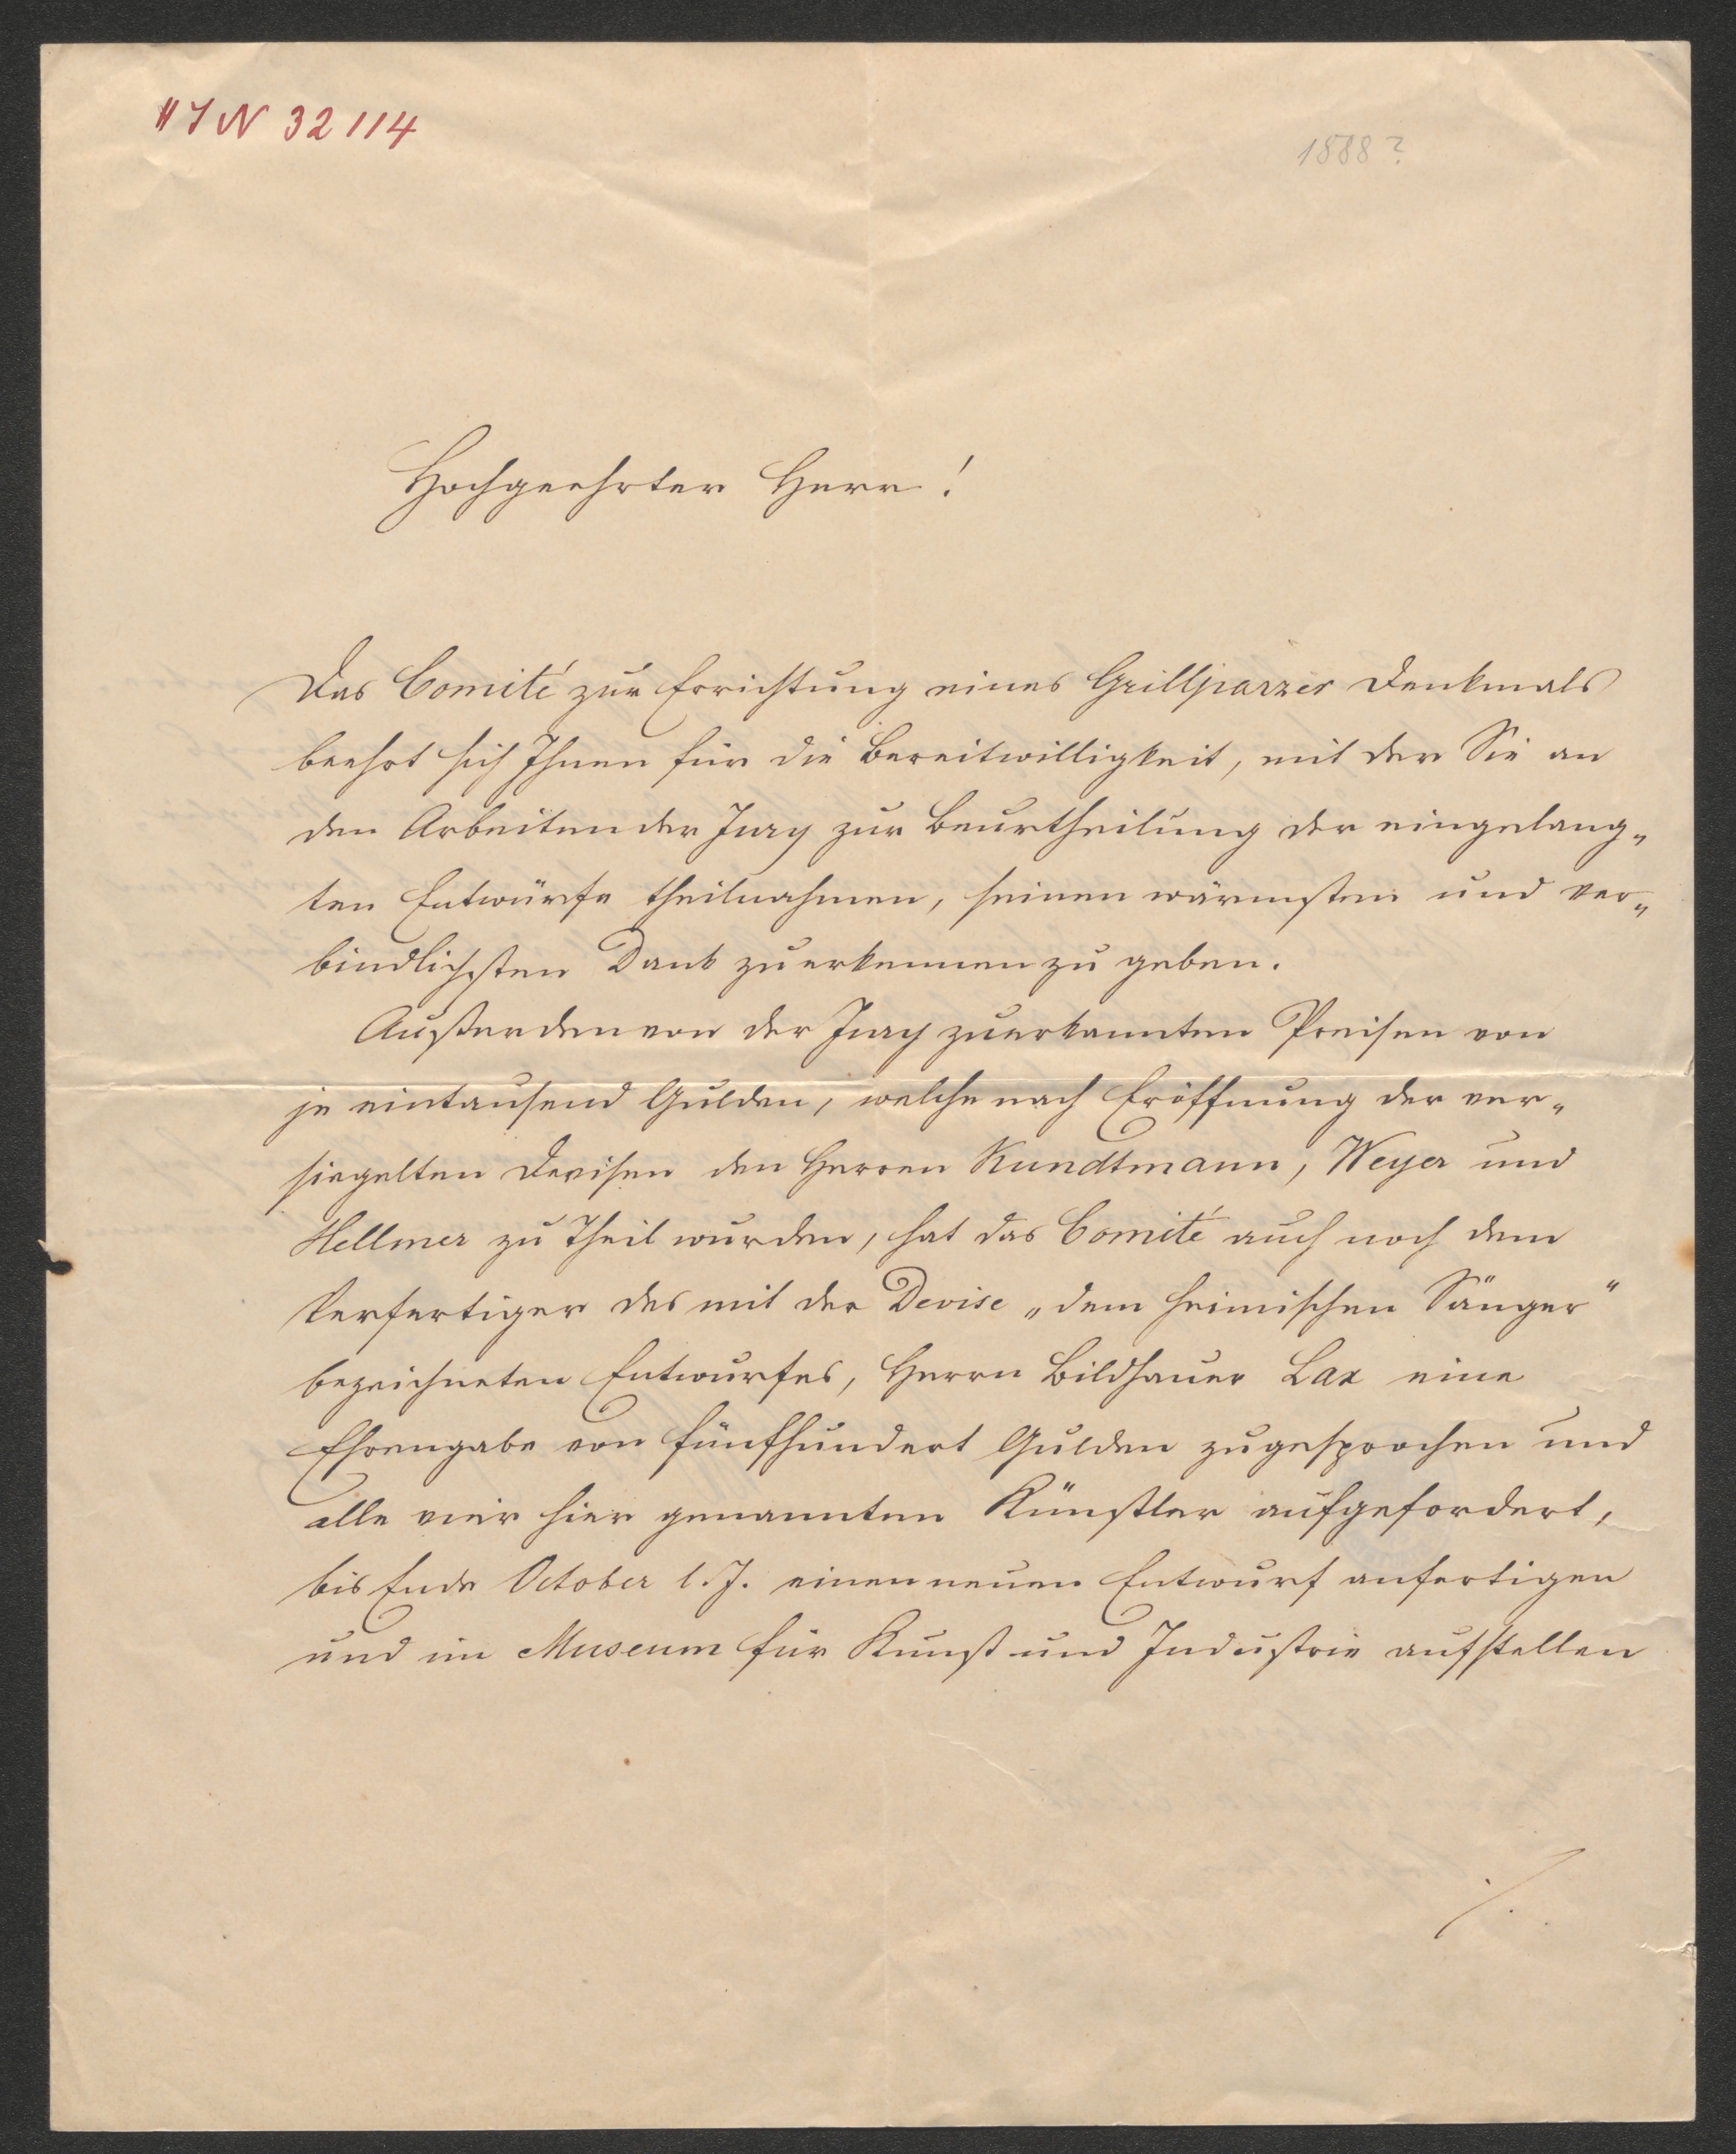 HIN 32114
1888?
Hochgeehrter Herr!
Das Comité zur Errichtung eines Grillparzer Denkmals
beehrt sich Ihnen für die Bereitwilligkeit, mit der Sie an
den Arbeiten der Jury zur Beurtheilung der eingelang-
ten Entwürfe theilnahmen, seinen wärmsten und ver-
bindlichsten Dank zu erkennen zu geben.
Außer den von der Jury zuerkannten Preisen von
je eintausend Gulden, welche nach Eröffnung der ver-
siegelten Devisen den Herren Kundtmann, Weyer und
Hellmer zu Theil wurden, hat das Comité auch noch dem
Verfertiger des mit der Devise „dem heimischen Sänger“
bezeichneten Entwurfes, Herrn Bildhauer Lax eine
Ehrengabe von fünfhundert Gulden zugesprochen und
alle vier hier genannten Künstler aufgefordert,
bis Ende October l. J. einen neuen Entwurf anfertigen
und im Museum für Kunst und Industrie aufstellen
./.